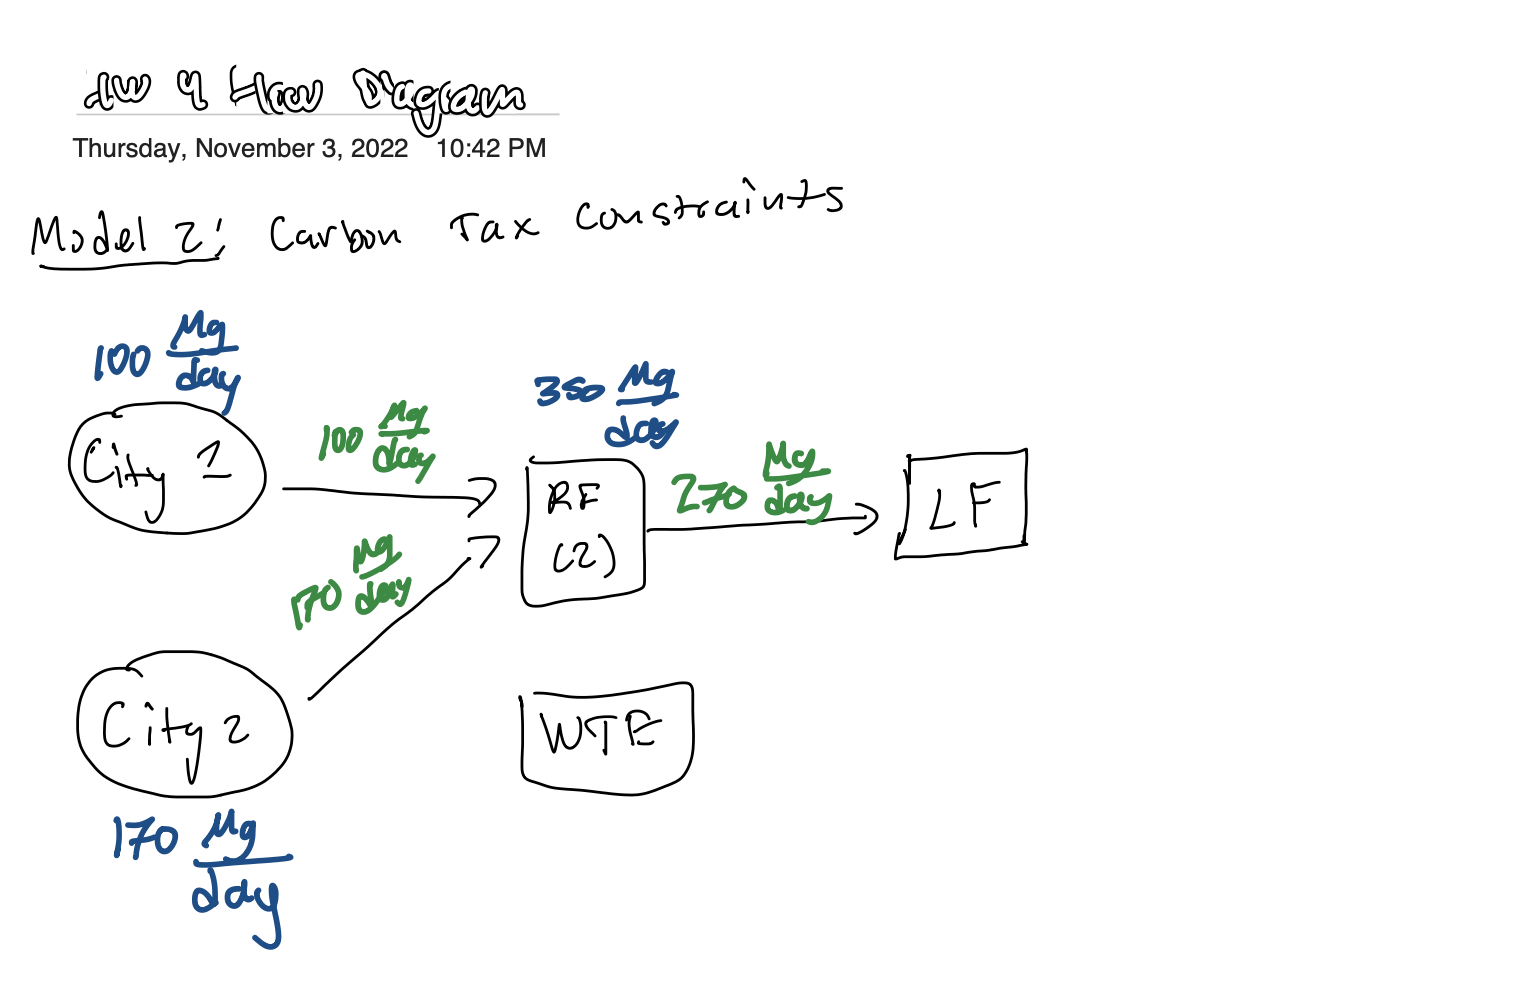 HW 4 Flow Diagram
Thursday, November 3, 2022 10:42 PM
Model 2: Carbon Tax Constraints
100 Mg/day
City 1
100 Mg/day
350 Mg/day
RF
(2)
270 Mg/day
LF
170 Mg/day
City 2
WTE
170 Mg/day